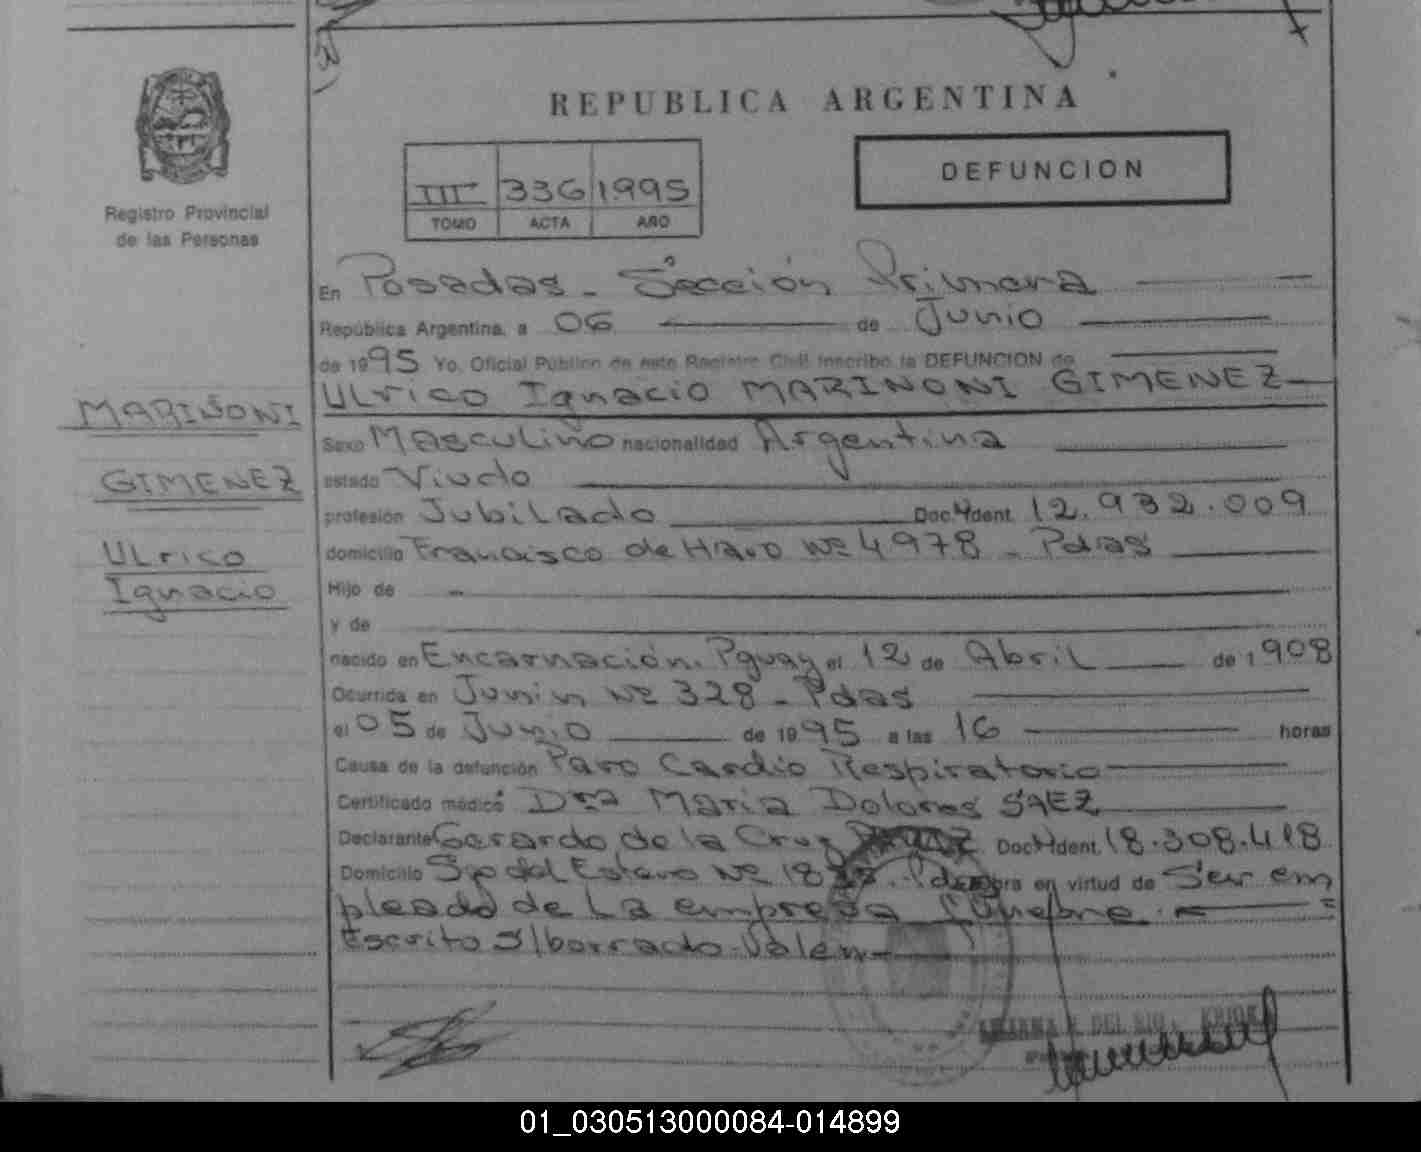 REPUBLICA ARGENTINA
DEFUNCION
III 336 1995
TOMO ACTA AÑO
Registro Provincial
de las Personas
MARIÑONI
GIMENEZ
ULrico
Ignacio
En Posadas - Sección Primera
República Argentina, a 06 de Junio
de 1995 Yo, Oficial Público de este Registro Civil inscribo la DEFUNCION de
ULrico Ignacio MARIÑONI GIMENEZ
Sexo Masculino nacionalidad Argentina
estado Viudo
profesión JubiLado Doc. Ident. 12.932.009
domicilio Francisco de Haro Nº 4978 - Pdas
Hijo de -
y de
nacido en Encarnación, Pguay el 12 de AbriL de 1908
Ocurrida en Junin Nº 328 - Pdas
el 05 de Junio de 1995 a las 16 horas
Causa de la defunción Paro Cardio Respiratorio
Certificado médico Dra Maria Dolores SAEZ
Declarante Gerardo de la Cruz Doc. Ident. 18.308.418
Domicilio Sgo del Estero Nº Pdas obra en virtud de Ser em
pleado de La empresa fúnebre.
Escrito S/borrado-Valen-
DEL RIO
01_030513000084-014899